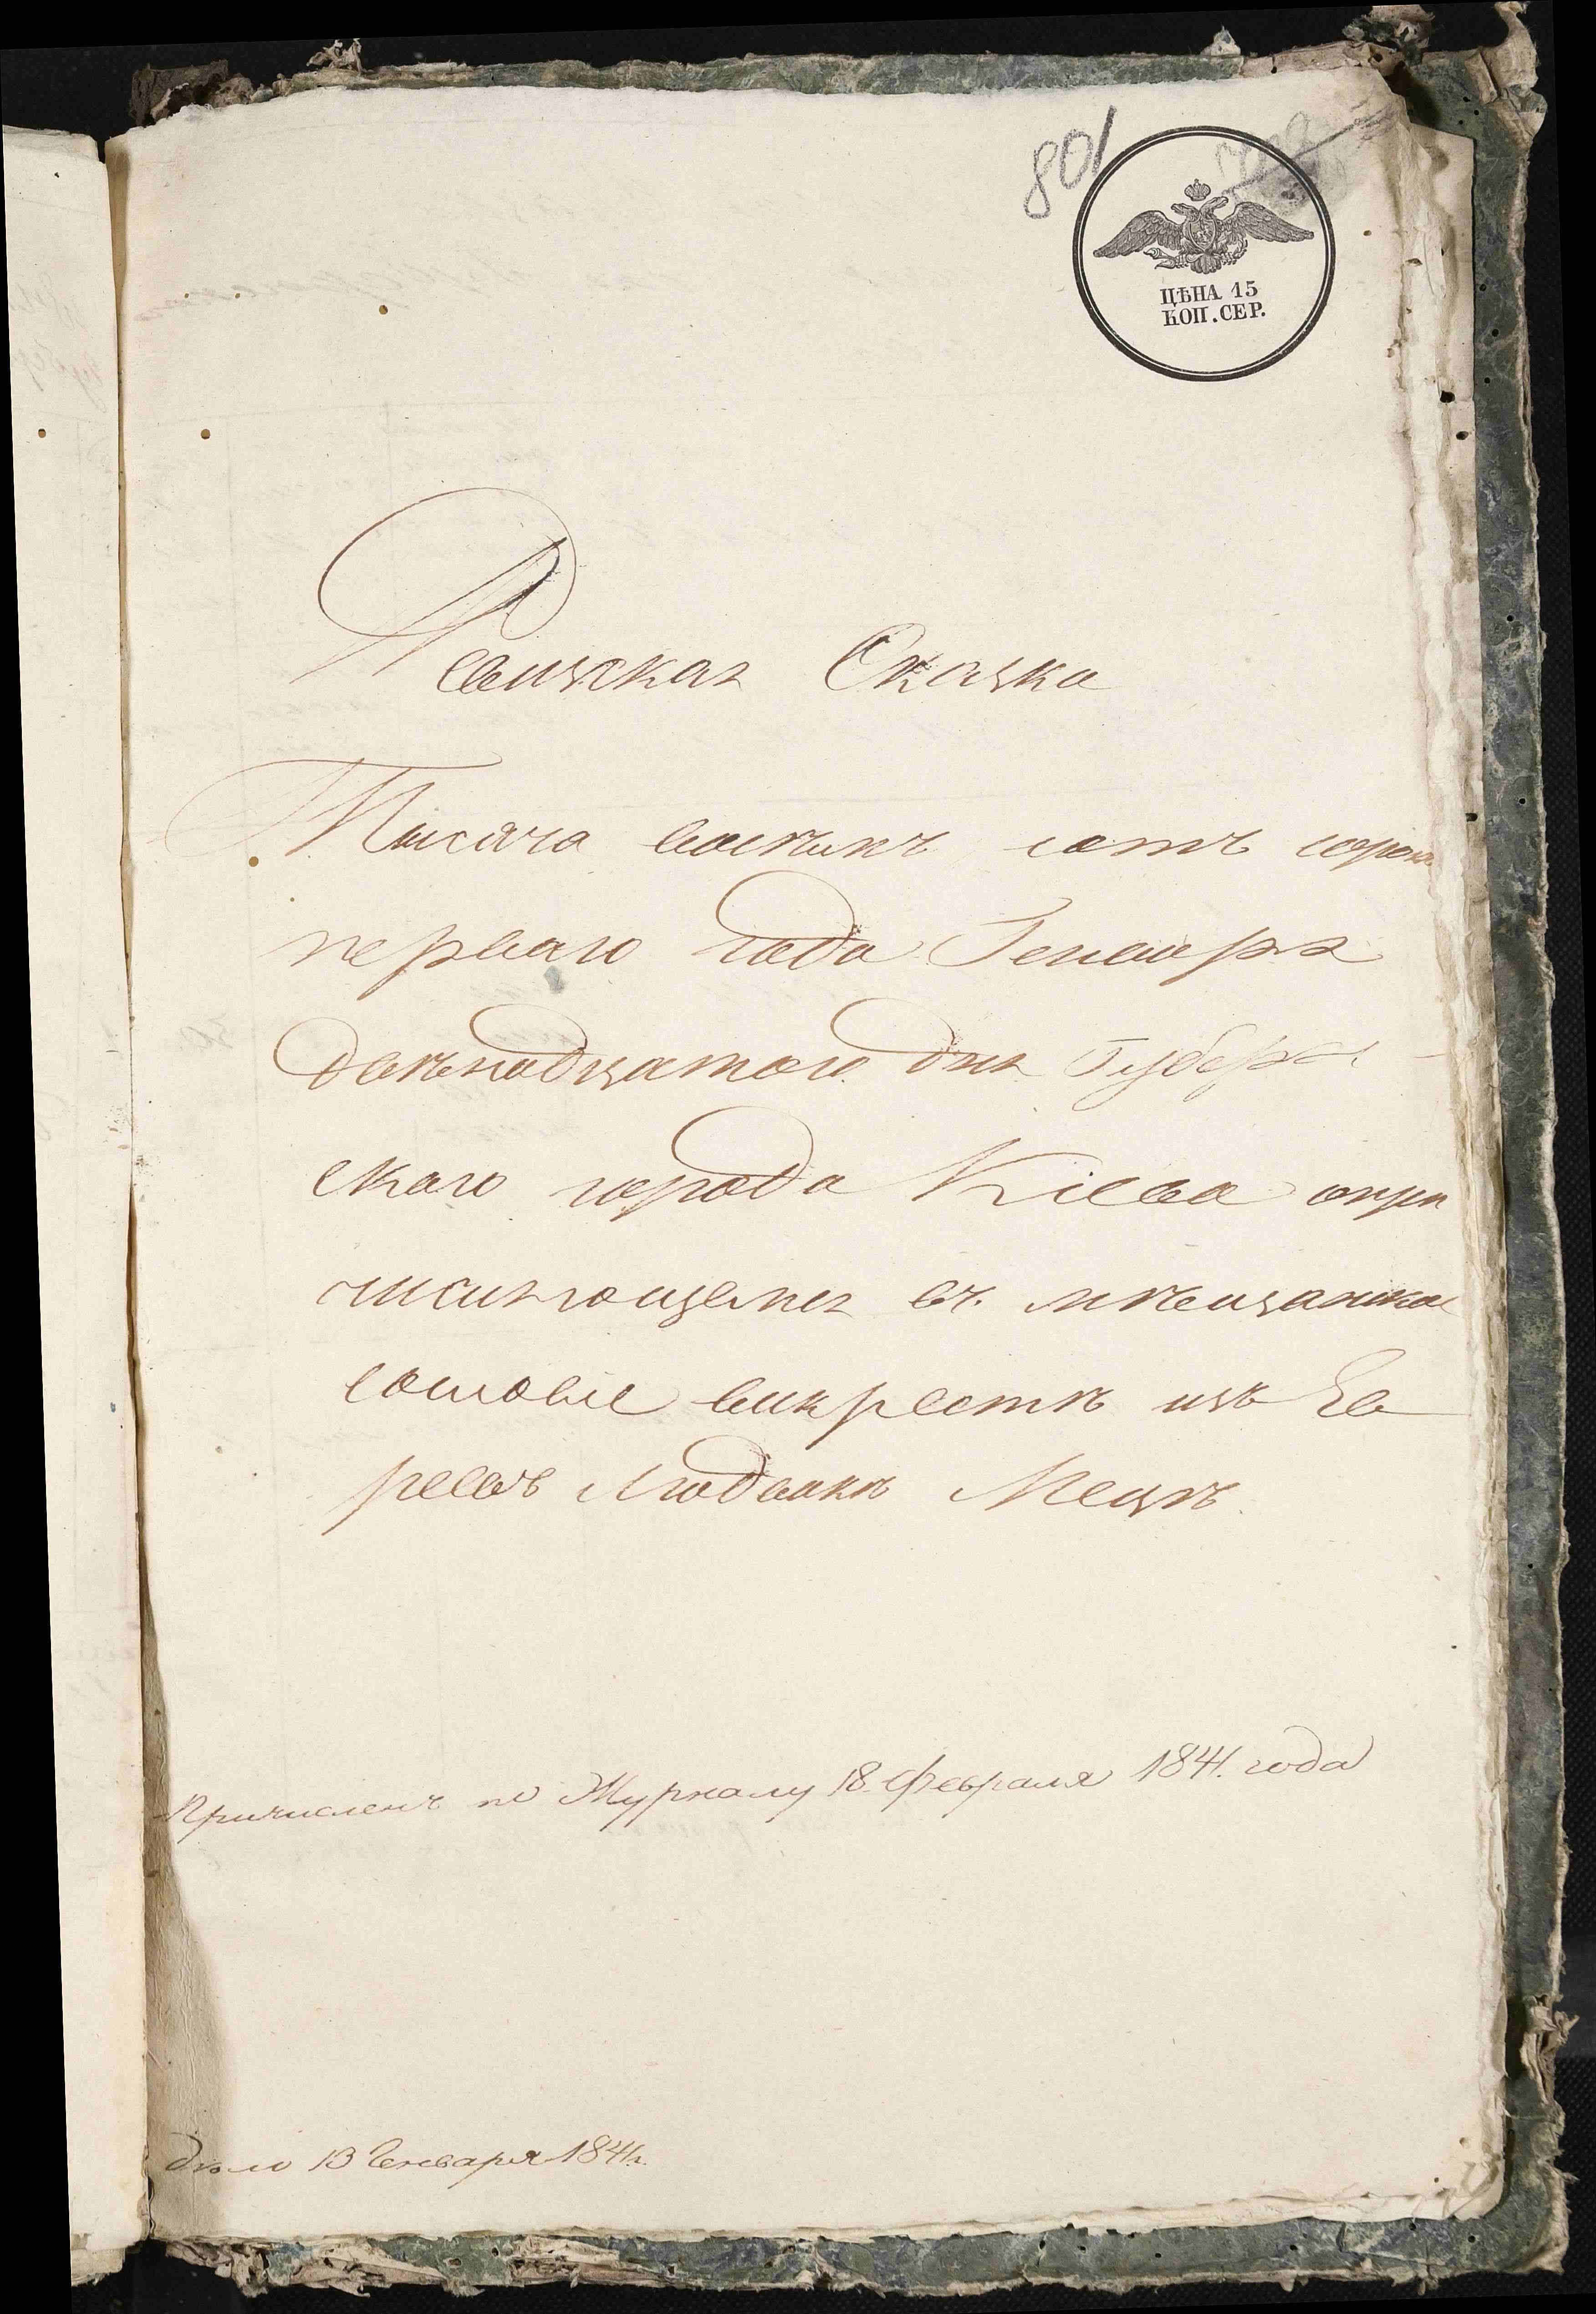 801
ЦѢНА 15
КОП. СЕР.
Ревизская Сказка
Тысяча восемъ сотъ сорокъ
перваго года Генваря
двенадцатого дня Губерн-
скаго города Кіева о при
числяющемся въ мѣщанское
сословіе выкрестъ изъ Ев
реевъ Людвикъ Мецъ.
Причисленъ по Журналу 18. Февраля 1841. года
дѣло 13 Генваря 1841г.